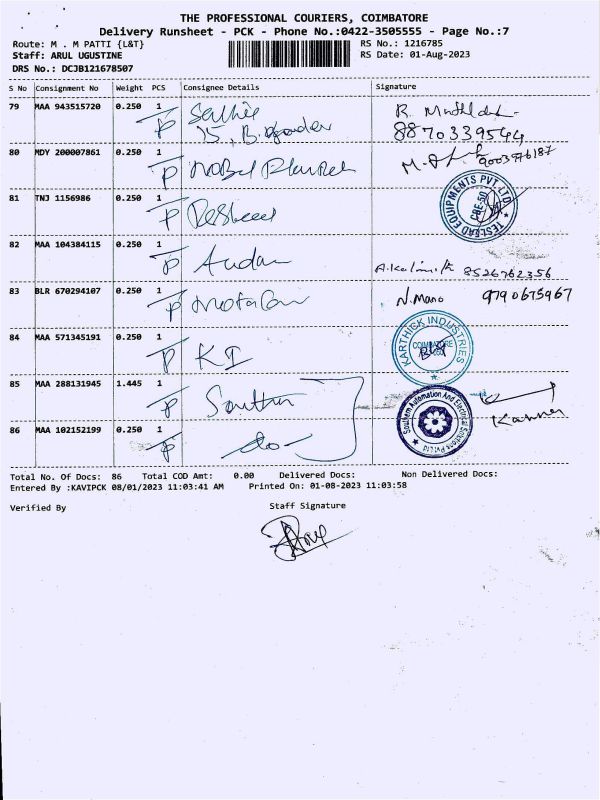 THE PROFESSIONAL COURIERS, COIMBATORE
Delivery Runsheet - PCK - Phone No.:0422-3505555 - Page No.:7
Route: M . M PATTI {L&T}
RS No.: 1216785
Staff: ARUL UGUSTINE
RS Date: 01-Aug-2023
DRS No.: DCJB121678507
S No Consignment No Weight PCS Consignee Details Signature
79 MAA 943515720 0.250 1
R.
15, B.
8870339544
80 MDY 200007861 0.250 1
Nobel
81 TNJ 1156986 0.250 1
TESLEAD EQUIPMENTS PVT LTD
CBE-50
82 MAA 104384115 0.250 1
8526762356
83 BLR 670294107 0.250 1
N. Mano 9790675967
84 MAA 571345191 0.250 1
KI
KARTHICK INDUSTRIES
COIMBATORE
85 MAA 288131945 1.445 1
Southern
Southern Automation And Electrical Systems Pvt Ltd
86 MAA 102152199 0.250 1
-do-
Total No. Of Docs: 86 Total COD Amt: 0.00 Delivered Docs: Non Delivered Docs:
Entered By :KAVIPCK 08/01/2023 11:03:41 AM Printed On: 01-08-2023 11:03:58
Verified By Staff Signature